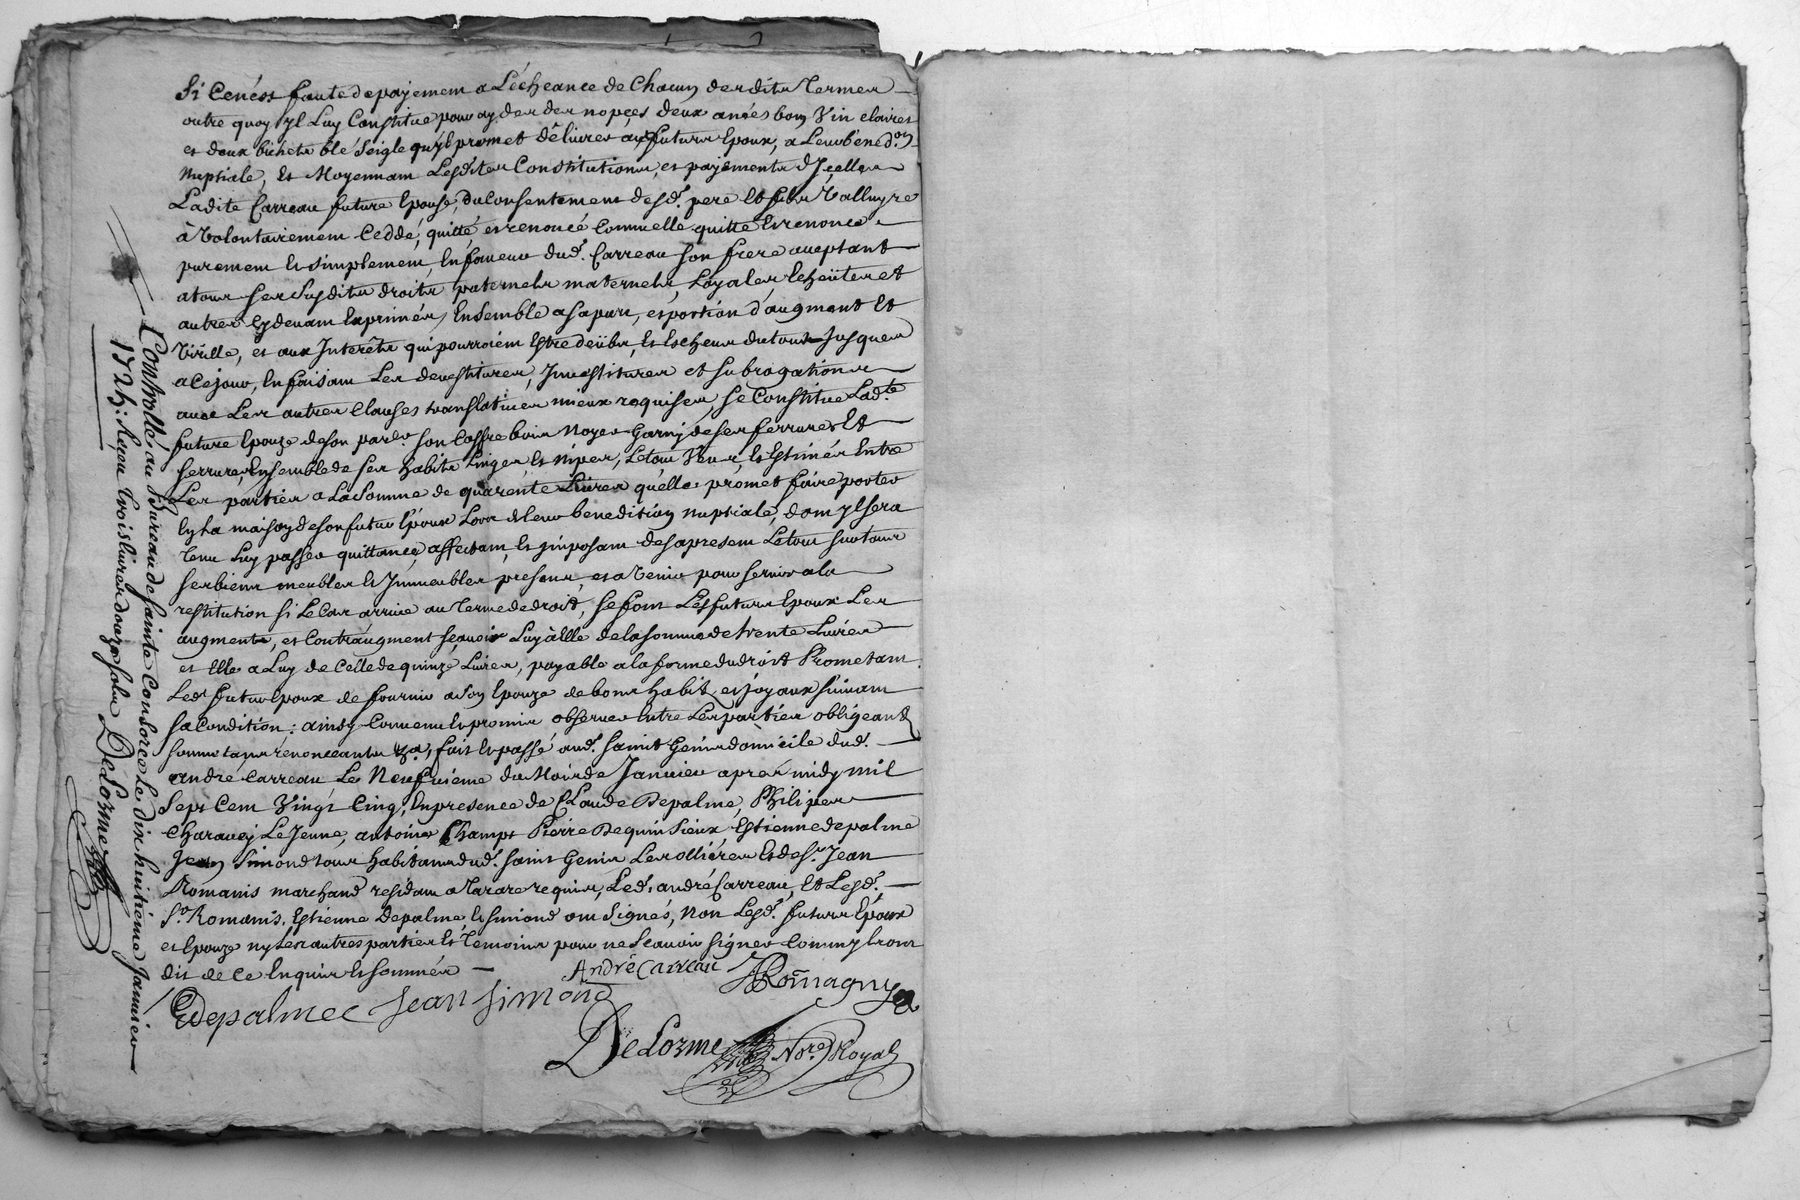 Si Cenést fauté depayement a Lécheance de Chacun desdits Termes
outre quoy yl Luy Constitue pour ayder des nopçes deux anées bon Vin clairet
et deux bichets blé Seigle quyl promet délivrer auxfuturs Epoux, a Leurbened.on
Nuptiale, Et Moyennant Lesdites Constitutions, et payements dJcelles
Ladite Carreau future Epouse, duConsentement desd. pere Et futur Talluyre
à Volontairement Ceddé, quitté, etrenoncé Commelle quitte Etrenonce
purement Etsimplement, Enfaveur dud. Carreau son frere aceptant
atous ses Susdits droits paternels maternels, Loyales, Echeütes et
autres Cydevant Exprimés, Ensemble asapart, etportion d'augment Et
Virille, et aux Jnterêts qui pourroient Estre deübs, Et Escheus dutout Jusques
aCejour, Enfaisant Les devestitures, Jnvestitures et Subrogations
avec Les autres Clauses translatives mieux requises, Se Constitue Lad.te
future Epouze deson parler Son Coffre bois Noyer Garny deses ferrures Et
serrures, Ensemble de ses habits Linges Et Nipes, Letout Veus, Et Estimés Entre
Les parties a LaSomme de quarente Livres quélle promet faire porter
Enla maison desonfutur Epoux Lors deleur benedition nuptiale, dont ylsera
Tenu Luy passer quittance, affectant, Et jmposant desapresent Letout surtous
sesbiens meubles Et Jmmeubles presens, et aVenir pour servir ala
restitution si LeCas arrive auTermededroit, se font Lesfuturs Epoux Les
augments, et Contraugment, scavoir Luy àElle delasomme de trente Livres
et Elle a Luy de Celle de quinze Livres, payable alaforme dudroit Prometant
Led. futur Epoux de fournir ason Epouze de bons habits, et joyaux suivant
saCondition: ainsy Convenu Etpromis observer Entre Lesparties obligeants
soumetans rénonceants &a, fait Etpassé aud. Saint Genis domicile dud.
andré Carreau Le Neufvieme du Mois de Janvier aprés midy mil
Sept Cent Vingt Cinq, Enpresence de Claude Depalme, Philipes
Charavey LeJeune, antoine Champt Pierre Dequin Sieux Estienne depalme
Jean Simond tous habitans dud. saint Genis Lesolliéres Et de Sr. Jean
Romanis marchand residant a Tarare requis, Led. andréCarreau, Et Lesd.
Sr. Romanis, Estienne Depalme Et simond ont Signés, Non Lesd. futurs Epoux
et Epouze ny Les autres parties Et Temoins pour ne Scavoir signer Comm yls ont
dit de Ce Enquis Et sommés
André Carreau
JRomagny
Edepalme Jean Simond
DeLorme Not.re Royal
Controllé au Bureau de Sainte Consorce Le dix huitieme Janvier
1725: Reçu trois livres douze sols DeLorme